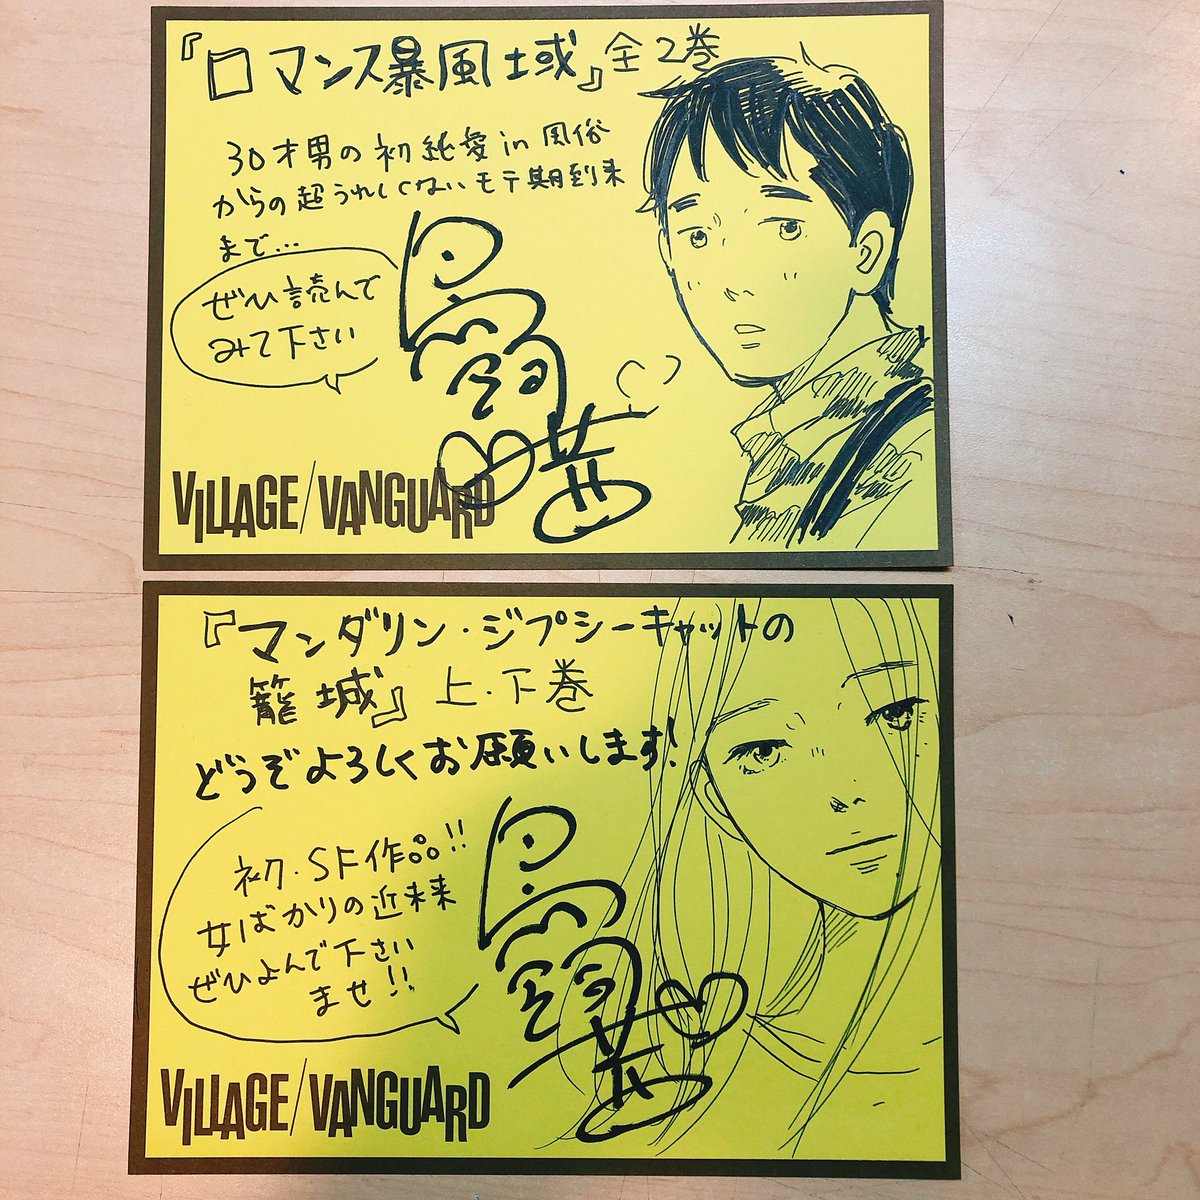 『ロマンス暴風域』全2巻
30才男の初純愛in風俗
からの超うれしくないモテ期到来
まで…
ぜひ読んで
みて下さい
鳥飼茜
VILLAGE/VANGUARD
『マンダリン・ジプシーキャットの
籠城』上・下巻
どうぞよろしくお願いします!
初・SF作品!!
女ばかりの近未来
ぜひよんで下さい
ませ!!
鳥飼茜
VILLAGE/VANGUARD